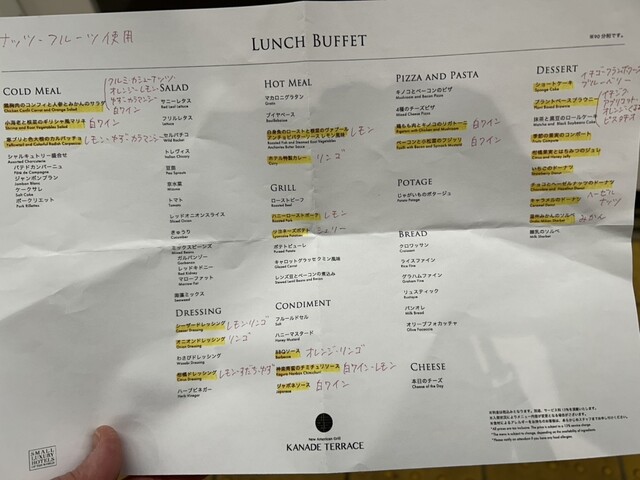 ナッツ・フルーツ使用
LUNCH BUFFET
COLD MEAL
鶏胸肉のコンフィと人参とみかんのサラダ
Chicken Confit Carrot and Orange Salad
小海老と根菜のギリシャ風マリネ 白ワイン
Shrimp and Root Vegetables Salad
レモン・ゆず・カラマンシー
シャルキュトリー盛合せ
Assorted Charcuterie
パテドカンパーニュ
Pate de Campagne
ジャンボンブラン
Jambon Blanc
ケークサレ
Cake Salé
ポークリエット
Pork Rillettes
クルミ・カシューナッツ・
オレンジ・レモン
ゆず・カラマンシー
白ワイン
SALAD
サニーレタス
Red Leaf Lettuce
フリルレタス
セルバチコ
Wild Rocket
トレヴィス
Italian Chicory
豆苗
Pea Sprouts
京水菜
Mizuna
トマト
Tomato
レッドオニオンスライス
Sliced Onion
きゅうり
Cucumber
ミックスビーンズ
Mixed Beans
ガルバンゾー
Garbanzo
レッドキドニー
Red Kidney
マローファット
Marrow Fat
海藻ミックス
Seaweed
DRESSING
シーザードレッシング レモン・リンゴ
Caesar Dressing
オニオンドレッシング リンゴ
Onion Dressing
わさびドレッシング
Wasabi Dressing
柑橘ドレッシング レモン・すだち・ゆず
Citrus Dressing
ハーブビネガー
Herb Vinegar
HOT MEAL
マカロニグラタン
Gratin
ブイヤベース
Bouillabaisse
アンチョビバターソース レモン風味 レモン
Anchovies Butter Sauce
ホテル特製カレー リンゴ
Curry
GRILL
ローストビーフ
Roasted Beef
ハニーローストポーク レモン
Roasted Pork
リヨネーズポテト シェリー
Lyonnaise Potatoes
ポテトピューレ
Potato Puree
キャロットグラッセ クミン風味
Glazed Carrot
レンズ豆とベーコンの煮込み
Stewed Lentil Beans and Bacon
CONDIMENT
フルールドセル
Salt
ハニーマスタード
Honey Mustard
BBQソース オレンジ・リンゴ
Barbecue
白ワイン・レモン
ジャポネソース 白ワイン
Japonese
PIZZA AND PASTA
キノコとベーコンのピザ
Mushroom and Bacon Pizza
4種のチーズピザ
Mixed Cheese Pizza
鶏もも肉とキノコのリガトーニ 白ワイン
Rigatoni with Chicken and Mushroom
ベーコンと小松菜のフジッリ 白ワイン
POTAGE
じゃがいものポタージュ
Potato Potage
BREAD
クロワッサン
Croissant
ライスファイン
Rice Fine
グラハムファイン
Graham Fine
リュスティック
Rustique
パンオレ
Milk Bread
オリーブフォカッチャ
Olive Focaccia
CHEESE
本日のチーズ
Cheese of the Day
※90分制です。
DESSERT
ショートケーキ
Sponge Cake
ブラントベースブラウニー
抹茶と黒豆のロールケーキ
Matcha and Black Soybeans Cake
季節の果実のコンポート
Fruits Compote
柑橘果実とはちみつのジュレ
Citrus and Honey Jelly
いちごのドーナツ
チョコとヘーゼルナッツのドーナツ
キャラメルのドーナツ ヘーゼルナッツ
Caramel Donut
温州みかんのソルベ みかん
醍乳のソルベ
Milk Sherbet
ブルーベリー
イチジク
アプリコット
ピスタチオ
New American Grill
KANADE TERRACE
SMALL
LUXURY
HOTELS
OF THE WORLD
*All prices are tax inclusive. The price is subject to a 13% service charge
*The menu is subject to change, depending on the availability of ingredients.
*Please notify an attendant if you have any food allergies.